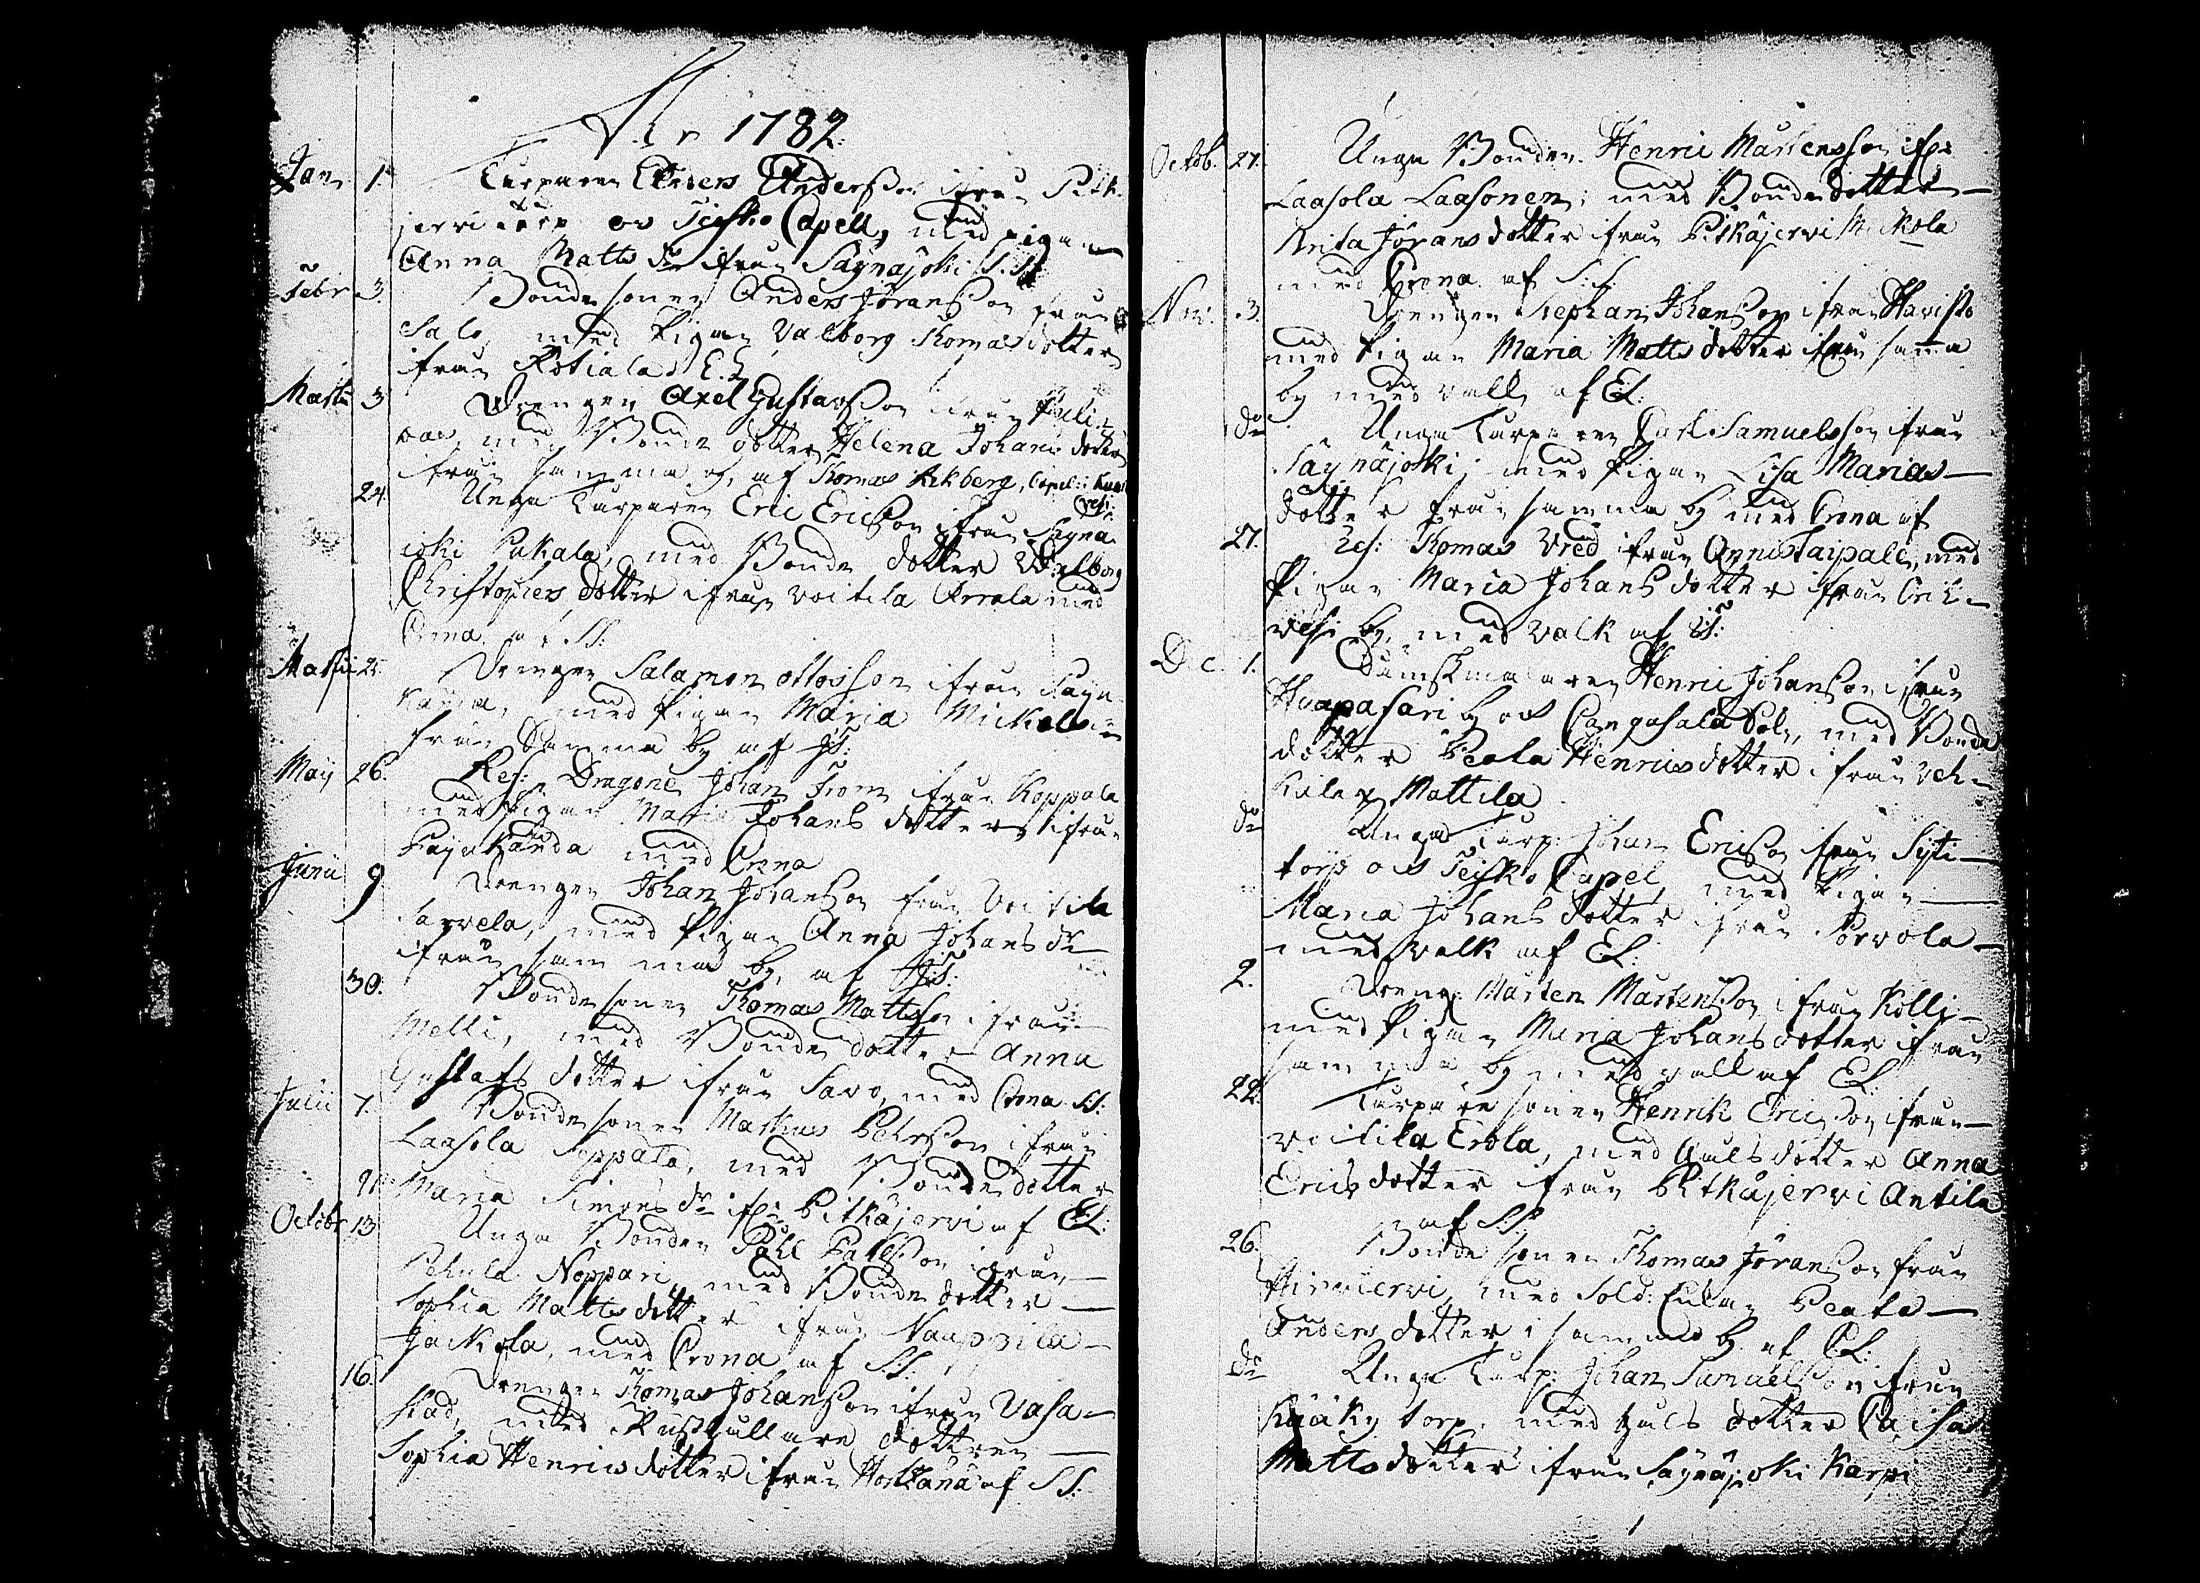 År 1782.
Jan. 1. Torparen Anders Andersson ifrån Pitk-
jerwi torp os Teisko Capell, med pigan
Anna Matts dr ifrån Säynäjoki S.S.
Febr. 3. Bondesonen Anders Jöransson från
Salo, med Pigan Valborg Thomasdotter
ifrån Rotiala E.L.
Martii 3 Drengen Axel Gustavsson ifrån
med Bonde dotter Helena Johans dotter
ifrån samma by, af Thomas Akberg, Capel: i Kuru
vesi:
24. Unga Torparen Eric Ericsson ifrån Säynä-
joki Pakala, med Bonde dotter Walborg
Christophers dotter ifrån Voitila Arrola med
Crona af S.S.
Martii 25. Drengen Salamon Ottosson ifrån Payu
kanda, med Pigan Maria Mickels dr
från Samma by af J.S.
Maij 26. Res: Dragone Johan From ifrån Koppala
med Pigan Maria Johans dotter ifrån
Payukanda med Crona
Junii 9. Drengen Johan Johansson från Voitila
Sarvela, med Pigan Anna Johans dr
ifrån samma by, af J.S.
30. Bondesonen Thomas Mattsson ifrån
Melli, med Bonde dotter Anna
Gustafs dotter ifrån Savo, med Crona S.S.
Julii 7. Bondesonen Mathias Pehrsson ifrån
Laasola Seppala, med Bonde dotter
Maria Simons dr ifr: Pitkäjervi af E.L.
Octobr 13 Unga Bonden Påhl Påhlsson ifrån
Pehula Noppari, med Bonde dotter
Sophia Matts dotter ifrån Naappila
Jackola, med Crona af S.S.
16. Drengen Thomas Johansson ifrån Vasa
stad, med Rusthållare dottren
Sophia Henrics dotter ifrån af S.S.
Octob. 27. Unga Bonden Henric Mårtensson ifr:
Laasola Laasonen, med Bonde dotter
Brita Jörans dotter ifrån Pitkäjervi Mickola
med Crona af S.S.
Nov. 3. Drengen Stephan Johansson ifrån Havisto
med Pigan Maria Matts dotter ifrån samma
by med valk af E.L.
do Unga Torparen Carl Samuelsson ifrån
Säynäjoki, med Pigan Lisa Marias
dotter från samma by med Crona af
27. Res: Thomas Vred ifrån Onnistaipale, med
Pigan Maria Johans dotter ifrån Ori
vesi by, med valk af J.S.
Dec. 1. Henric Johansson ifrån
Haapasari by och Cangasala Sokn, med Bonde
dotter Beata Henrics dotter ifrån Veh-
kalax Mattila
do Unga Torp: Johan Ericsson ifrån Syti
torp och Teisko Capel, med Pigan
Maria Johans dotter ifrån Porvola
med valk af E.L.
2. Dreng: Mårten Mårtensson ifrån Kolli
med Pigan Maria Johans dotter ifrån
samma by med valk af E.L.
22. Torparesonen Henrik Ericsson ifrån
Voitila Erola, med Hulsdotter Anna
Erics dotter ifrån Pitkäjervi Antila
af S.S.
26. Bonde sonen Thomas Jöransson från
Hirvijervi, med Sold: Enkan Beata
Anders dotter i samma by af E.L.
do Unga Torp: Johan Samuelsson ifrån
torp, med huls dotter Caisa
Matts dotter ifrån Säynäjoki Karpi